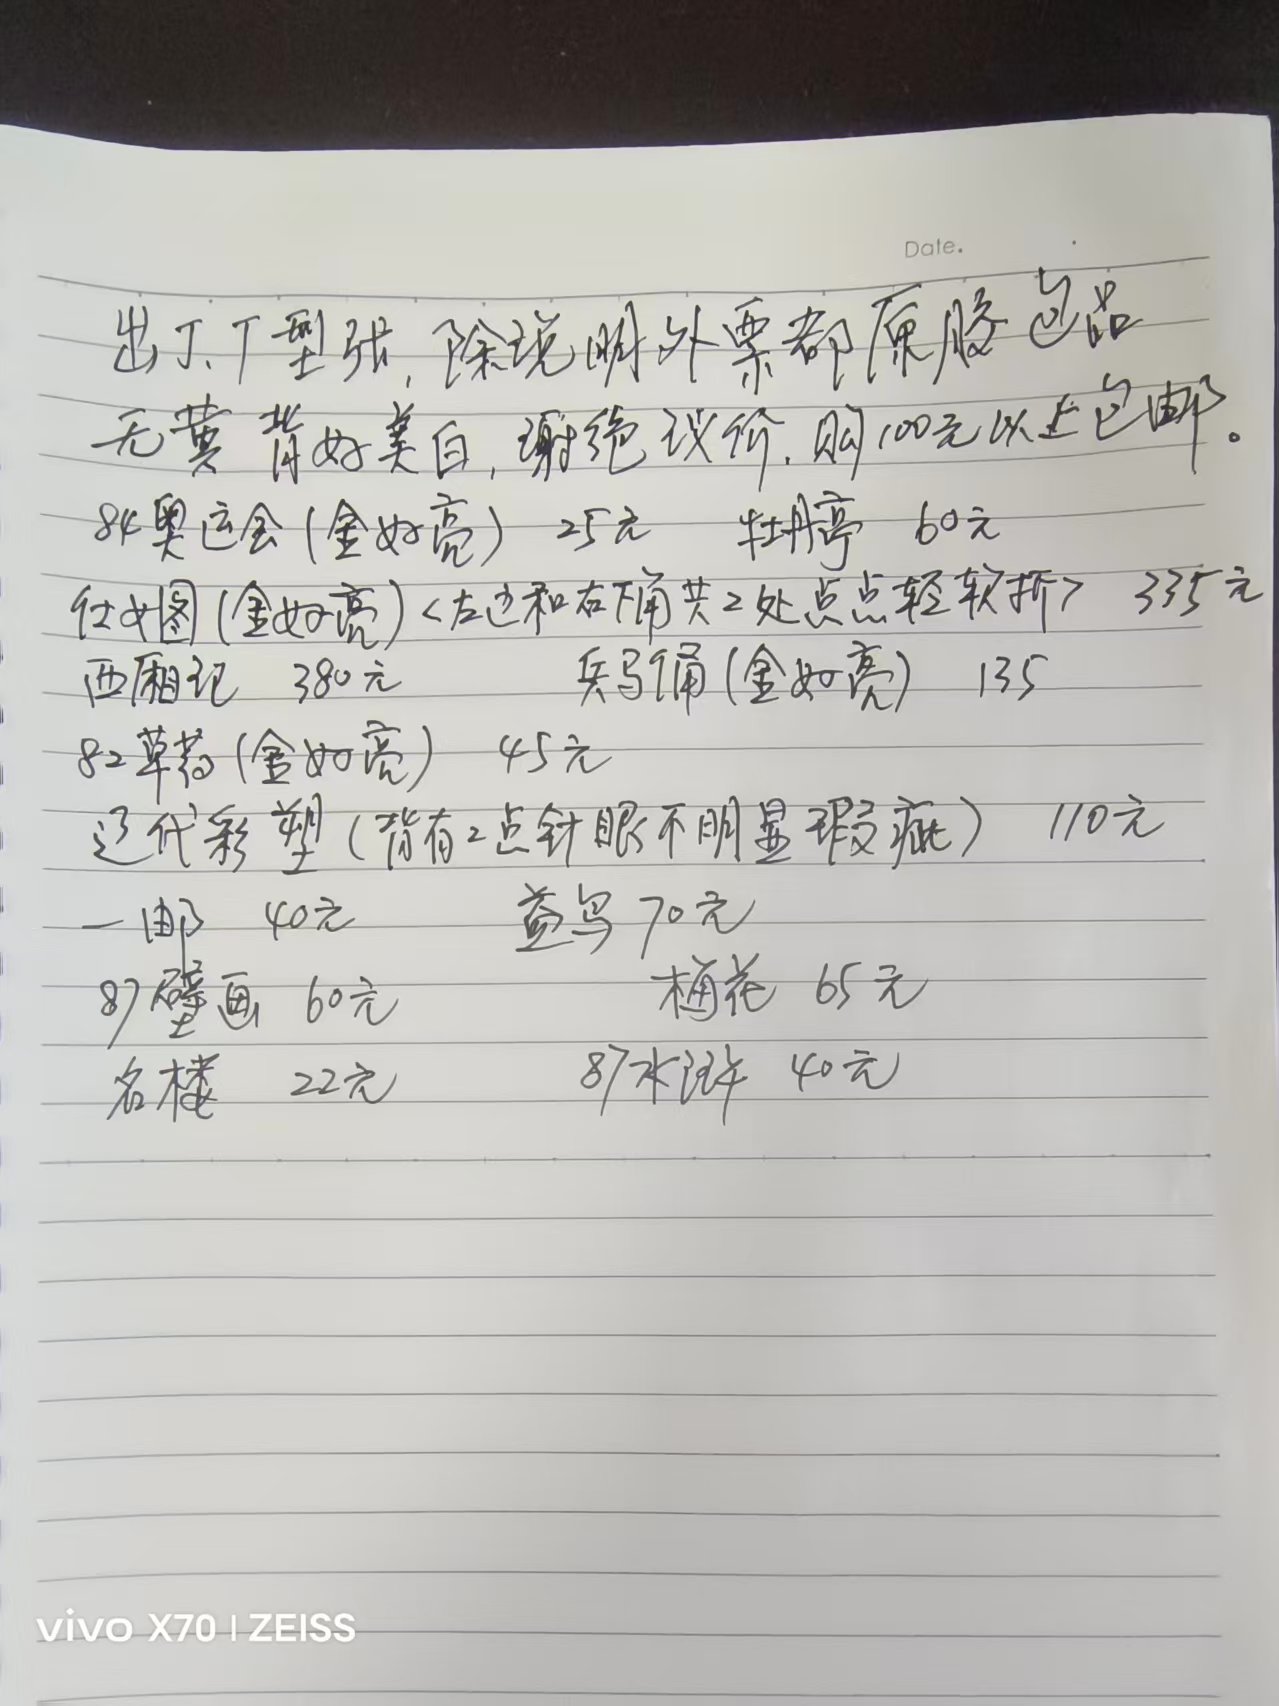 Date.
出J、T型张,除说明外票都原胶包品
无黄背好美白,谢绝议价,购100元以上包邮。
84奥运会(金好亮) 25元 牡丹亭 60元
仕女图(金好亮)<左边和右下角共2处点点轻软折> 335元
西厢记 380元 兵马俑(金好亮) 135
82草药(金好亮) 45元
辽代彩塑(背有2点针眼不明显瑕疵) 110元
一邮 40元 益鸟 70元
87壁画 60元 桶花 65元
名楼 22元 87水浒 40元
vivo X70 | ZEISS